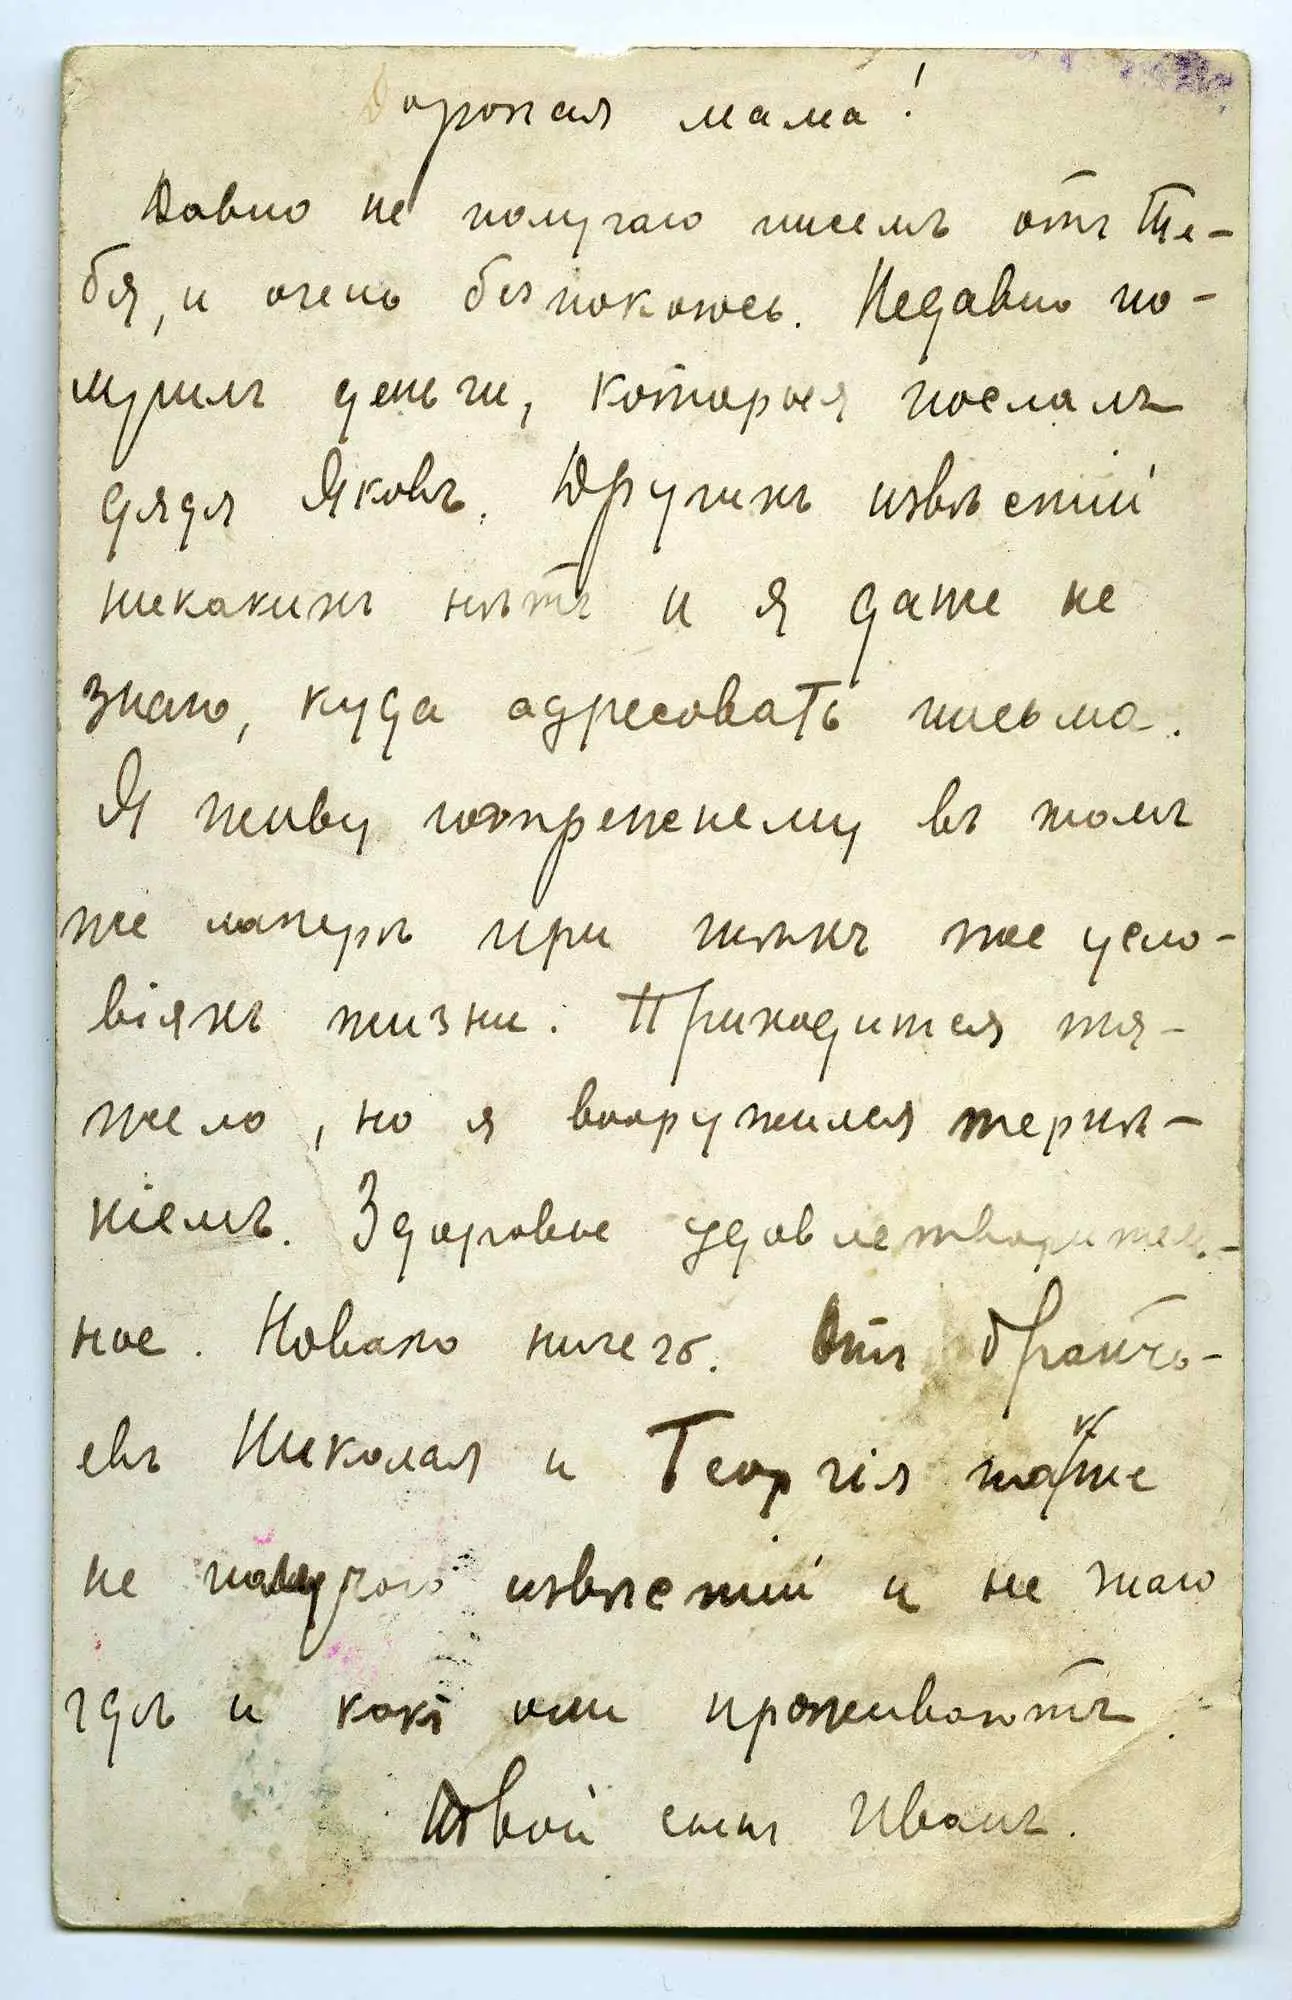 Дорогая мама!
Давно не получаю писемъ отъ Те-
бя, и очень безпокоюсь. Недавно по-
лучилъ деньги, которыя послалъ
дядя Яковъ. Другихъ извѣстій
никакихъ нѣтъ и я даже не
знаю, куда адресовать письма.
Я живу попрежнему въ томъ
же лагерѣ при тѣхъ же усло-
віяхъ жизни. Приходится тя-
жело, но я вооружился терпѣ-
ніемъ. Здоровье удовлетворитель-
ное. Новаго ничего. Отъ братъ-
евъ Николая и Георгія также
не получаю извѣстій и не знаю
гдѣ и какъ они проживаютъ.
Твой сынъ Иванъ.